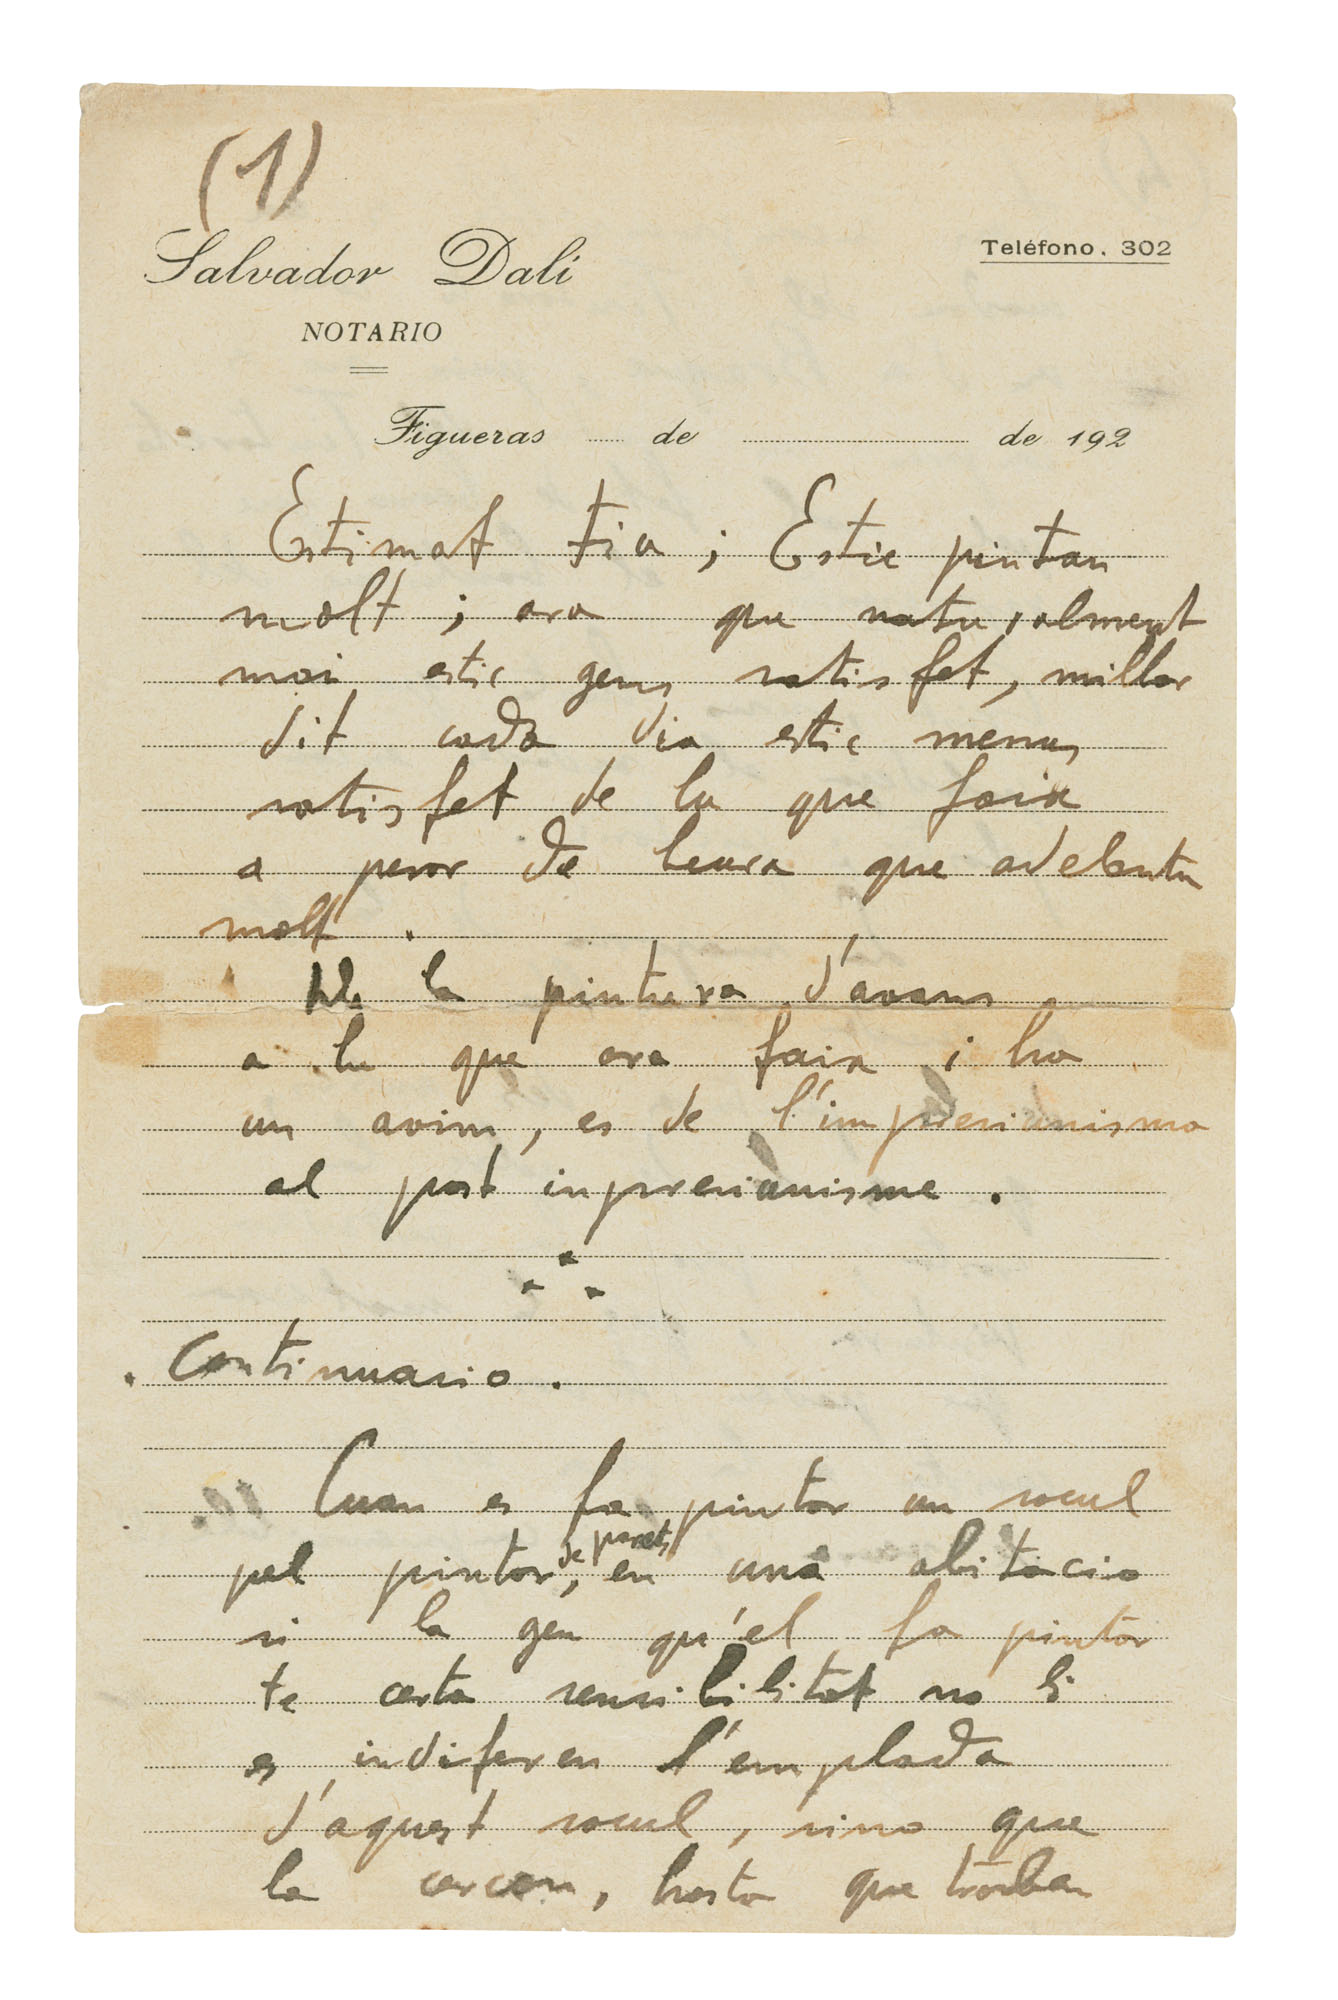 (1)
Salvador Dalí
Teléfono. 302
NOTARIO
Figueras de de 192
Estimat tio; Estic pintan
molt; ara que naturalment
mai estic gens satisfet, millor
dit cada dia estic menus
satisfet de lu que faix
a pesor de veura que adelantu
molt.
De la pintura d'avans
a lu que ara faix i ha
un avim, es de l'impresionisma
al post inpresionisme.
. Continuasio.
Cuan es fa pintar un socul
pel pintor, de parets, en una abitacio
si la gen qu'el fa pintar
te certa sensibilitat no li
es indiferen l'emplada
d'aquest socul, sino que
la cercan, hasta que troban